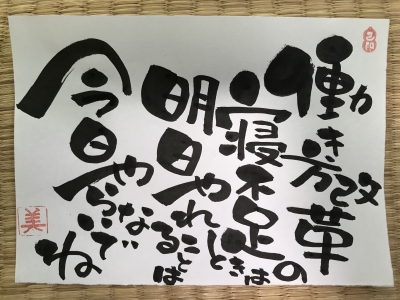 働き方改革の
寝不足ときは
明日やれることは
今日やらないでね
美